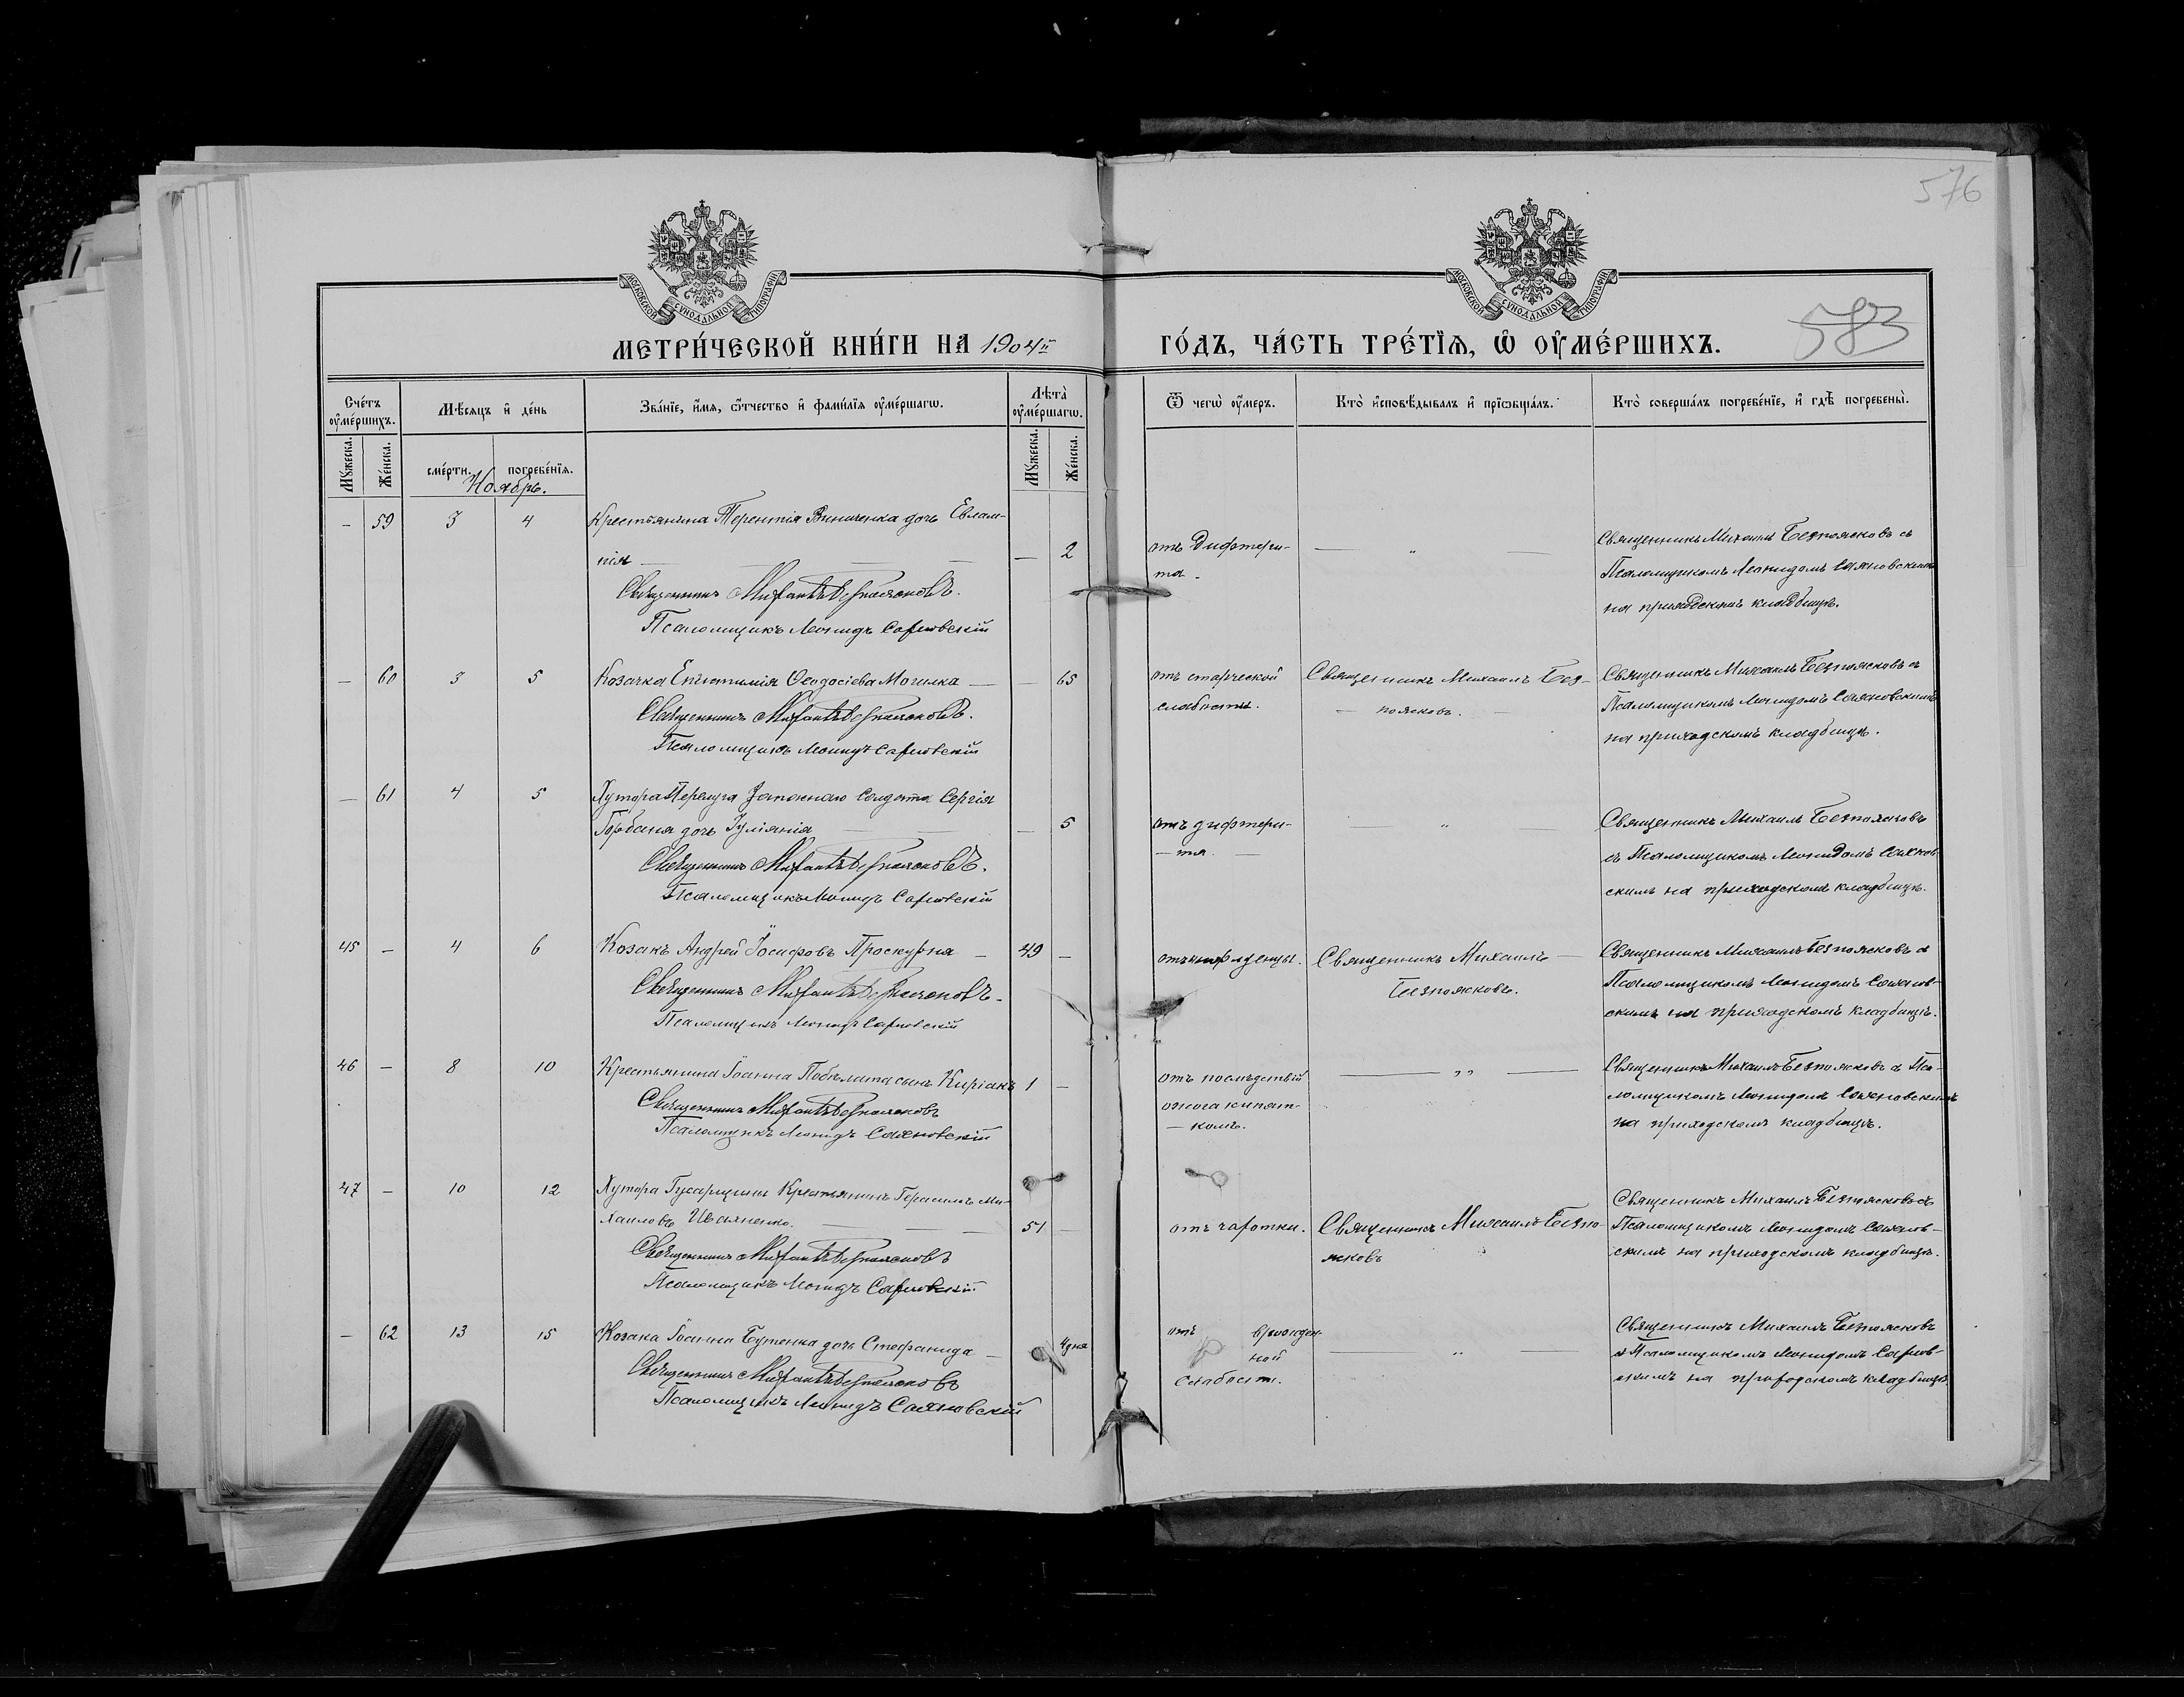 576
583
МОСКОВСКОЙ СѴНОДАЛЬНОЙ ТИПОГРАФІИ
МОСКОВСКОЙ СѴНОДАЛЬНОЙ ТИПОГРАФІИ
МЕТРИ́ЧЕСКОЙ КНИ́ГИ НА 1904й ГО́ДЪ, ЧА́СТЬ ТРЕ́ТЇѦ, Ѡ҆ ОУ҆МЕ́РШИХЪ.
Сче́тъ оу҆ме́ршихъ.
Мꙋ́жеска.
Же́нска.
Мѣ́сѧцъ и҆ де́нь
сме́рти.
погребе́нїѧ.
Зва́нїе, и҆́мѧ, ѻ҆́тчество и҆ фами́лїѧ оу҆ме́ршагѡ.
Лѣта̀ оу҆ме́ршагѡ.
Мꙋ́жеска.
Же́нска.
Ѿ чегѡ̀ оу҆́меръ.
Кто̀ и҆сповѣ́дывалъ и҆ прїѡбща́лъ.
Кто̀ соверша́лъ погребе́нїе, и҆ гдѣ̀ погребены̀.
Ноябрь.
- 59 3 4 Крестьянина Терентія Винниченка дочь Евлам-
пія — 2
Священникъ Михаилъ Безпоясковъ.
Псаломщикъ Леонидъ Саяновскій
отъ дифтери-
та.
— „ —
Священникъ Михаилъ Безпоясковъ съ
Псаломщикомъ Леонидомъ Саяновскимъ
на приходскомъ кладбищѣ.
— 60 3 5 Козачка Ѳеодосіева Могилка — — 65
Священникъ Михаилъ Безпоясковъ.
Псаломщикъ Леонидъ Саяновскій
отъ старческой
слабости.
Священникъ Михаилъ Без-
— поясковъ. —
Священникъ Михаилъ Безпоясковъ съ
Псаломщикомъ Леонидомъ Саяновскимъ
на приходскомъ кладбищѣ.
— 61 4 5 Хутора запасного Солдата Сергія
Горбаня дочь Іуліанія — — 5
Священникъ Михаилъ Безпоясковъ.
Псаломщикъ Леонидъ Саяновскій
отъ дифтери-
— та. —
„ —
Священникъ Михаилъ Безпоясковъ
съ Псаломщикомъ Леонидомъ Саянов-
скимъ на приходскомъ кладбищѣ.
45 — 4 6 Козакъ Андрей Іосифовъ Проскурня — 49 —
Священникъ Михаилъ Безпоясковъ.
Псаломщикъ Леонидъ Саяновскій
Священникъ Михаилъ —
Безпоясковъ.
Священникъ Михаилъ Безпоясковъ съ
Псаломщикомъ Леонидомъ Саянов-
скимъ на приходскомъ кладбищѣ.
46 — 8 10 Крестьянина Іоанна сынъ Киріакъ 1 —
Священникъ Михаилъ Безпоясковъ
Псаломщикъ Леонидъ Саяновскій
отъ послѣдствій
ожога кипят-
— комъ.
— „ —
Священникъ Михаилъ Безпоясковъ съ Пса-
ломщикомъ Леонидомъ Саяновскимъ
на приходскомъ кладбищѣ.
47 — 10 12 Хутора Гусарщины Крестьянинъ Герасимъ Ми-
хаиловъ Иваненко. — 51 —
Священникъ Михаилъ Безпоясковъ
Псаломщикъ Леонидъ Саяновскій
отъ чахотки.
Священникъ Михаилъ Безпо-
ясковъ
Священникъ Михаилъ Безпоясковъ съ
Псаломщикомъ Леонидомъ Саянов-
скимъ на приходскомъ кладбищѣ.
— 62 13 15 Козака Іоанна Бутенка дочь Стефанида — 4 дня
Священникъ Михаилъ Безпоясковъ
Псаломщикъ Леонидъ Саяновскій
отъ врожден-
ной
слабости.
— „ —
Священникъ Михаилъ Безпоясковъ
съ Псаломщикомъ Леонидомъ Саянов-
скимъ на приходскомъ кладбищѣ.